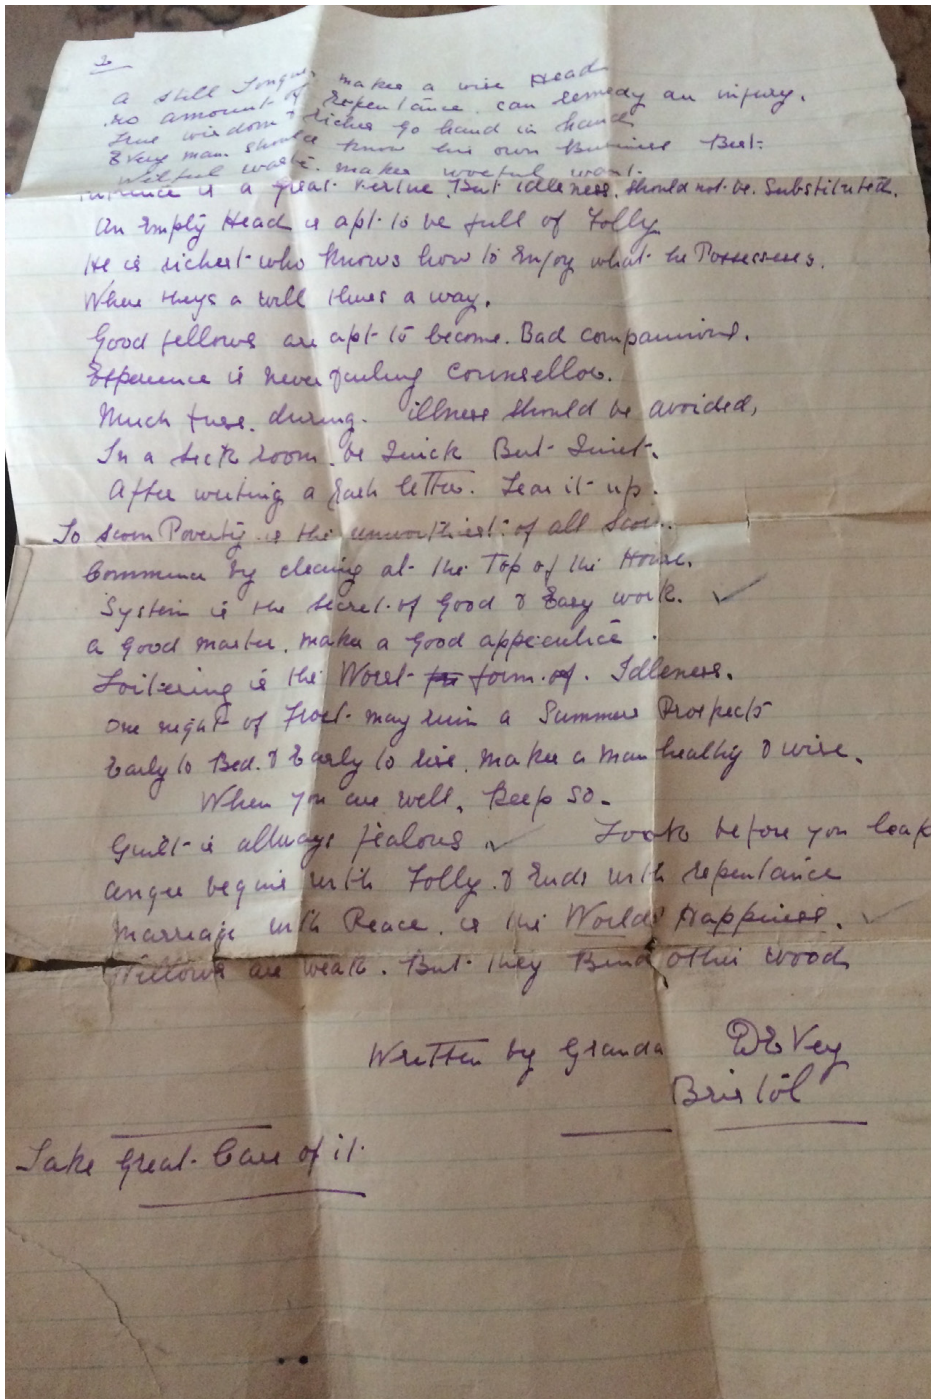 2
A Still Tongue makes a wise Head
No amount of Repentance can remedy an injury.
True wisdom & riches go hand in hand
Every man should know his own Business Best.
Wilful waste makes woeful want.
is a great vertue But idleness, should not be Substituted.
An Empty Head is apt to be full of Folly
He is richest who knows how to Enjoy what he Possesses.
When theys a will thers a way.
Good fellows are apt to become Bad companions.
Experience is never failing counsellor.
Much fuss during illness should be avoided,
In a sick room be Quick But Quiet.
After writing a Rash letter. Tear it up.
To scorn Poverty is the unworthiest of all Scorn.
Commence by cleaning at the Top of the House.
System is the secret of Good & Easy work.
A Good master make a Good apprentice
Loitering is the Worst form of Idleness.
One night of Frost may ruin a Summers Prospects
Early to Bed & Early to rise makes a man healthy & wise.
When you are well, Keep so.
Guilt is allways jealous Look before you leap
anger begins with Folly & Ends with repentance
Marriage with Peace is the Worlds Happiness.
Willows are weak. But they Bind other wood
Written by Granda DeVey
Bristol
Take Great Care of it.